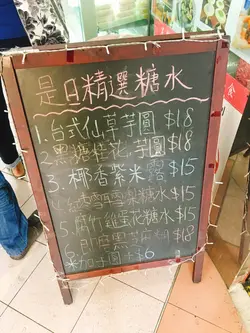 是日精選糖水
1. 台式仙草芋圓 $18
2. 黑糖桂花芋圓 $18
3. 椰香紫米露 $15
4. 紅棗雪耳梨糖水 $15
5. 腐竹雞蛋花糖水 $15
6. 即磨黑芝麻糊 $18
加芋圓 +$6